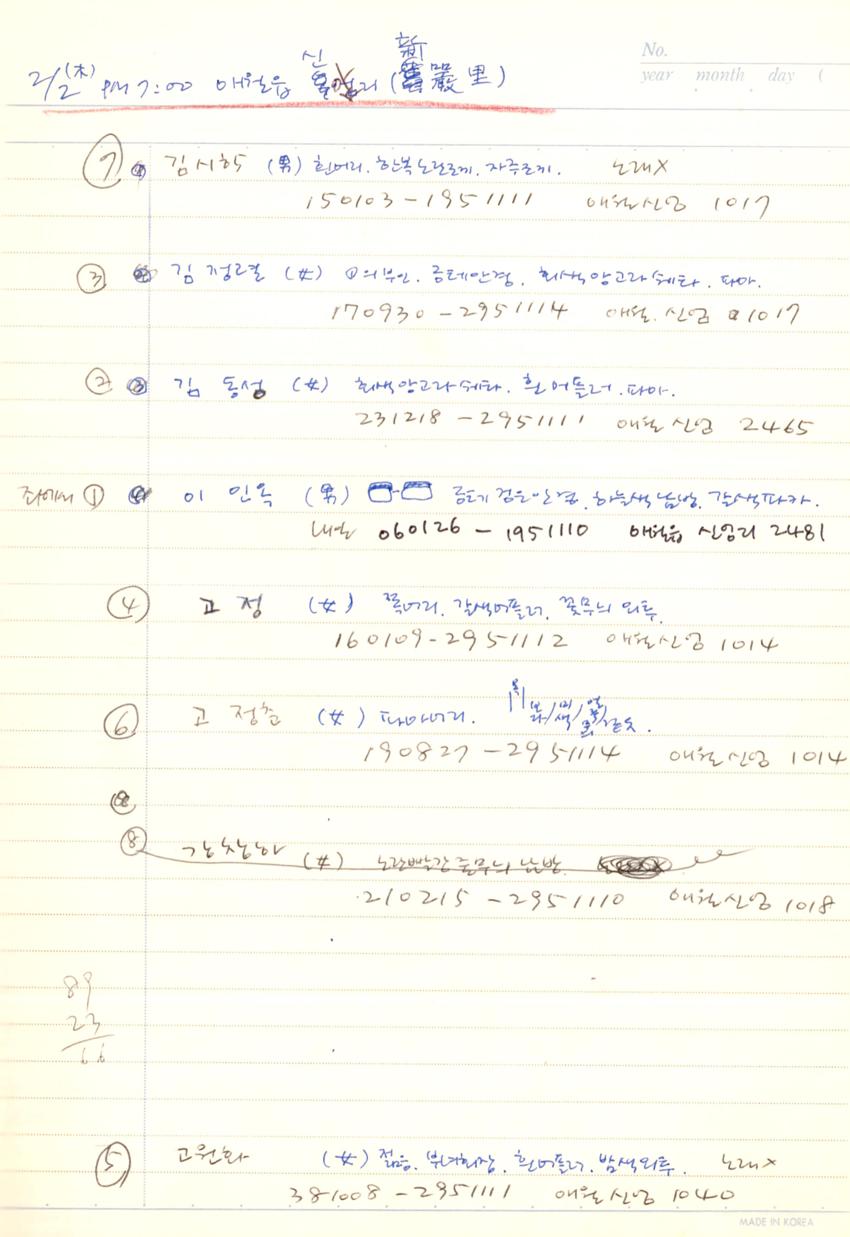 No.
year month day (
신 新
2/2 (木) PM 7:00 애월읍 리 (舊嚴里)
⑦ 김시학 (男) 흰머리. 한복 노란조끼. 자주조끼. 노래X
150103-1951111 애월 신엄 1017
③ 김정렬 (女) ①의 부인. 금테안경. 회색앙고라 쉐타. 파마.
170930-2951114 애월. 신엄 1017
② ③ 김동성 (女) 회색앙고라쉐타. 흰 머플러. 파마.
231218-2951111 애월 신엄 2465
좌에서 ① 이인옥 (男) 검은안경. 하늘색 남방. 갈색파카.
060126-1951110 애월읍 신엄리 2481
④ 고정 (女) 쪽머리. 갈색머플러. 꽃무늬 외투.
160109-2951112 애월 신엄 1014
⑥ 고정춘 (女) 파마머리.
190827-2951114 애월 신엄 1014
⑧
⑧ 강창화 (女) 노란빨간줄무늬 남방.
210215-2951110 애월 신엄 1018
89
23
66
⑤ 고원화 (女) 젊음. 부녀회장. 흰머플러. 밤색외투. 노래X
381008-2951111 애월 신엄 1040
MADE IN KOREA